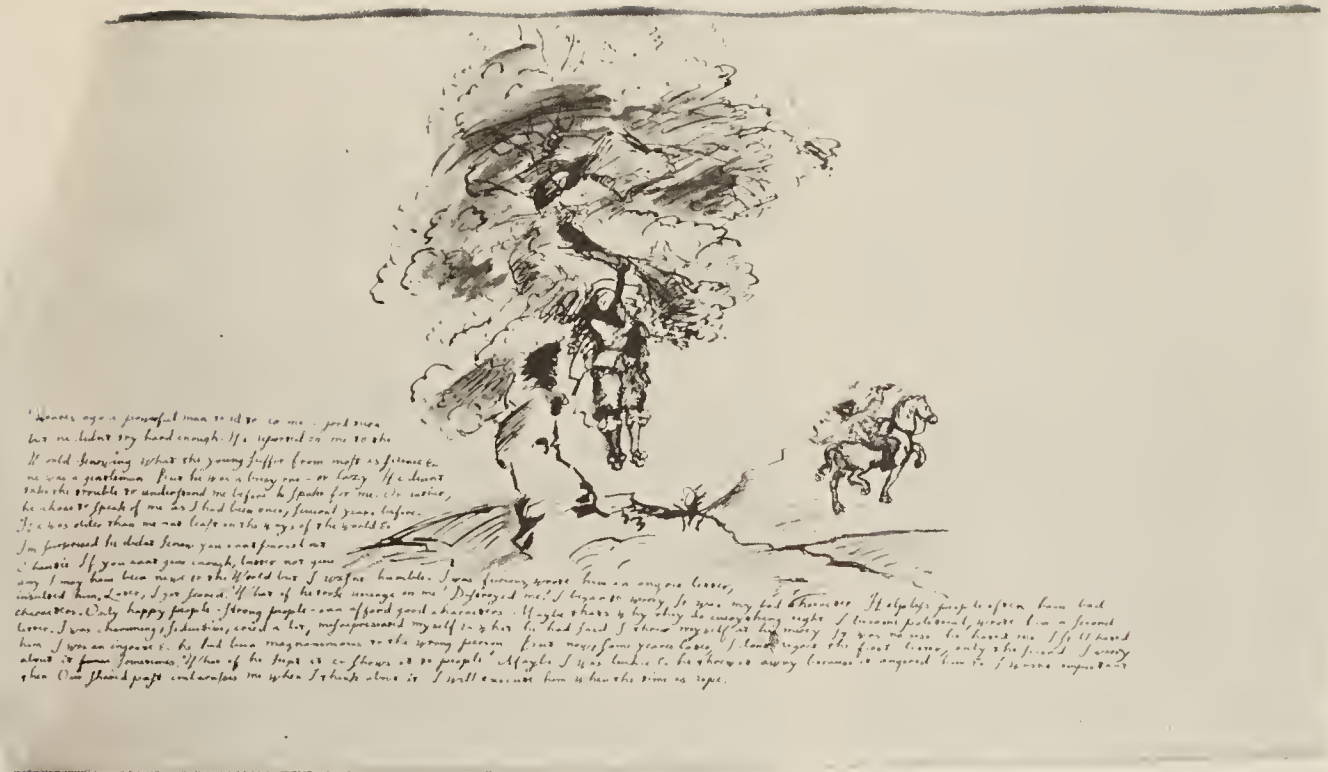 ago a powerful man tried to do me a good turn
but he didnt try hard enough. He reported on me to the
World knowing what the young suffer from most is
he was a gentleman But he was a busy one - or lazy He didnt
take the trouble to understand me before he spoke for me. Or rather,
he chose to speak of me as I had been once, several years before.
He was older than me at least in the ways of the world &
Im surprised he didnt know you cant
If you cant give enough, better not give
any I may have been next to the World but I wasnt humble. I was furious, wrote him an angry letter,
insulted him. Later, I got scared. What if he took revenge on me? Destroyed me? I began to worry. It was my bad character Helpless people often have bad
characters. Only happy people - strong people - can afford good characters. Maybe thats why they do everything right I became political, wrote him a second
letter. I was charming, seductive, cried a lot, misrepresented myself in what he had said I threw myself at his mercy It was no use he hated me I still hated
him I was an ingrate & he had been magnanimous to the wrong person But now, some years later, I dont regret the first letter, only the second I worry
about it sometimes. What if he kept it & shows it to people? Maybe I was lucky & he threw it away because it angered him & I wasnt important
then Our shared past embarrasses me when I think about it I will execute him when the time is ripe.